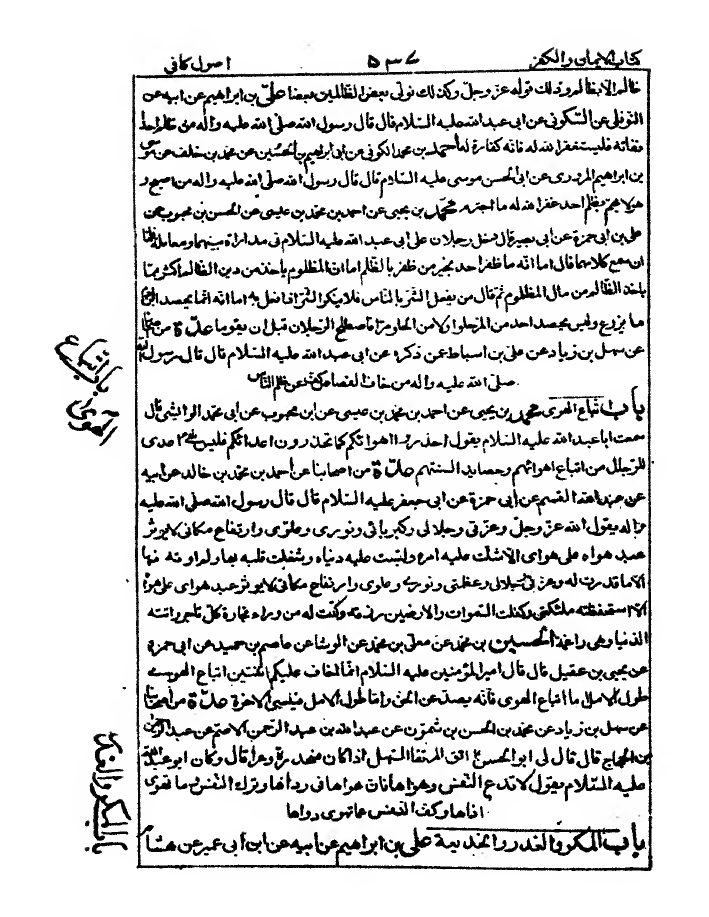 كتاب الايمان والكفر ٥٣٧ اصول كافي
ظالم الا بظالم وذلك قوله عز وجل وكذلك نولى بعض الظالمين بعضا على بن ابراهيم عن ابيه عن
النوفلى عن السكونى عن ابى عبد الله عليه السلام قال قال رسول الله صلى الله عليه واله من ظلم احدا
ففاته فليستغفر الله له فانه كفارة له احمد بن محمد الكوفى عن ابراهيم بن الحسين عن محمد بن خلف عن موسى
بن ابراهيم المروزى عن ابى الحسن موسى عليه السلام قال قال رسول الله صلى الله عليه واله من اصبح و
هو لا يهم بظلم احد غفر الله له ما اجترم محمد بن يحيى عن احمد بن محمد بن عيسى عن الحسن بن محبوب عن
على بن ابى حمزة عن ابى بصير قال دخل رجلان على ابى عبد الله عليه السلام فى مداراة بينهما ومعاملة فلما
ان سمع كلامهما قال اما انه ما ظفر احد بخير من ظفر بالظلم اما ان المظلوم ياخذ من دين الظالم اكثر مما
ياخذ الظالم من مال المظلوم ثم قال من يفعل الشر بالناس فلا ينكر الشر اذا فعل به اما انه انما يحصد ابن ادم
ما يزرع وليس يحصد احد من المر حلوا ولا من الحلو مرا فاصطلح الرجلان قبل ان يقوما عدة من اصحابنا
عن سهل بن زياد عن على بن اسباط عن ذكره عن ابى عبد الله عليه السلام قال قال رسول الله
صلى الله عليه واله من خاف القصاص كف عن ظلم الناس
باب اتباع الهوى محمد بن يحيى عن احمد بن محمد بن عيسى عن ابن محبوب عن ابى محمد الوابشى قال
سمعت ابا عبد الله عليه السلام يقول احذروا اهوائكم كما تحذرون اعدائكم فليس شئ اعدى
للرجال من اتباع اهوائهم وحصايد السنتهم عدة من اصحابنا عن احمد بن محمد بن خالد عن ابيه
عن عبد الله القسم عن ابى حمزة عن ابى جعفر عليه السلام قال قال رسول الله صلى الله عليه
واله يقول الله عز وجل وعزتى وجلالى وكبريائى ونورى وعلوى وارتفاع مكانى لا يؤثر
عبد هواه على هواى الا شتت عليه امره ولبست عليه دنياه وشغلت قلبه بها ولم اوته منها
الا ما قدرت له وعزتى وجلالى وعظمتى ونورى وعلوى وارتفاع مكانى لا يؤثر عبد هواى على هواه
الا استحفظته ملئكتى وكفلت السموات والارضين رزقه وكنت له من وراء تجارة كل تاجر واتته
الدنيا وهى راغمة الحسين بن محمد عن معلى بن محمد عن الوشا عن عاصم بن حميد عن ابى حمزة
عن يحيى بن عقيل قال قال امير المؤمنين عليه السلام انما اخاف عليكم اثنتين اتباع الهوى و
طول الامل اما اتباع الهوى فانه يصد عن الحق واما طول الامل فينسى الاخرة عدة من اصحابنا
عن سهل بن زياد عن محمد بن الحسن بن شمون عن عبد الله بن عبد الرحمن الاصم عن عبد الرحمن
بن الحجاج قال قال لى ابو الحسن ع اتق المرتقا السهل اذا كان منحدره وعرا قال وكان ابو عبد الله
عليه السلام يقول لا تدع النفس وهواها فان هواها فى رداها وترك النفس وما تهوى
اذاها وكف النفس عما تهوى دواها
باب المكر والغدر والخديعة على بن ابراهيم عن ابيه عن ابن ابى عمير عن هشام
باب اتباع
الهوى
باب المكر والغدر